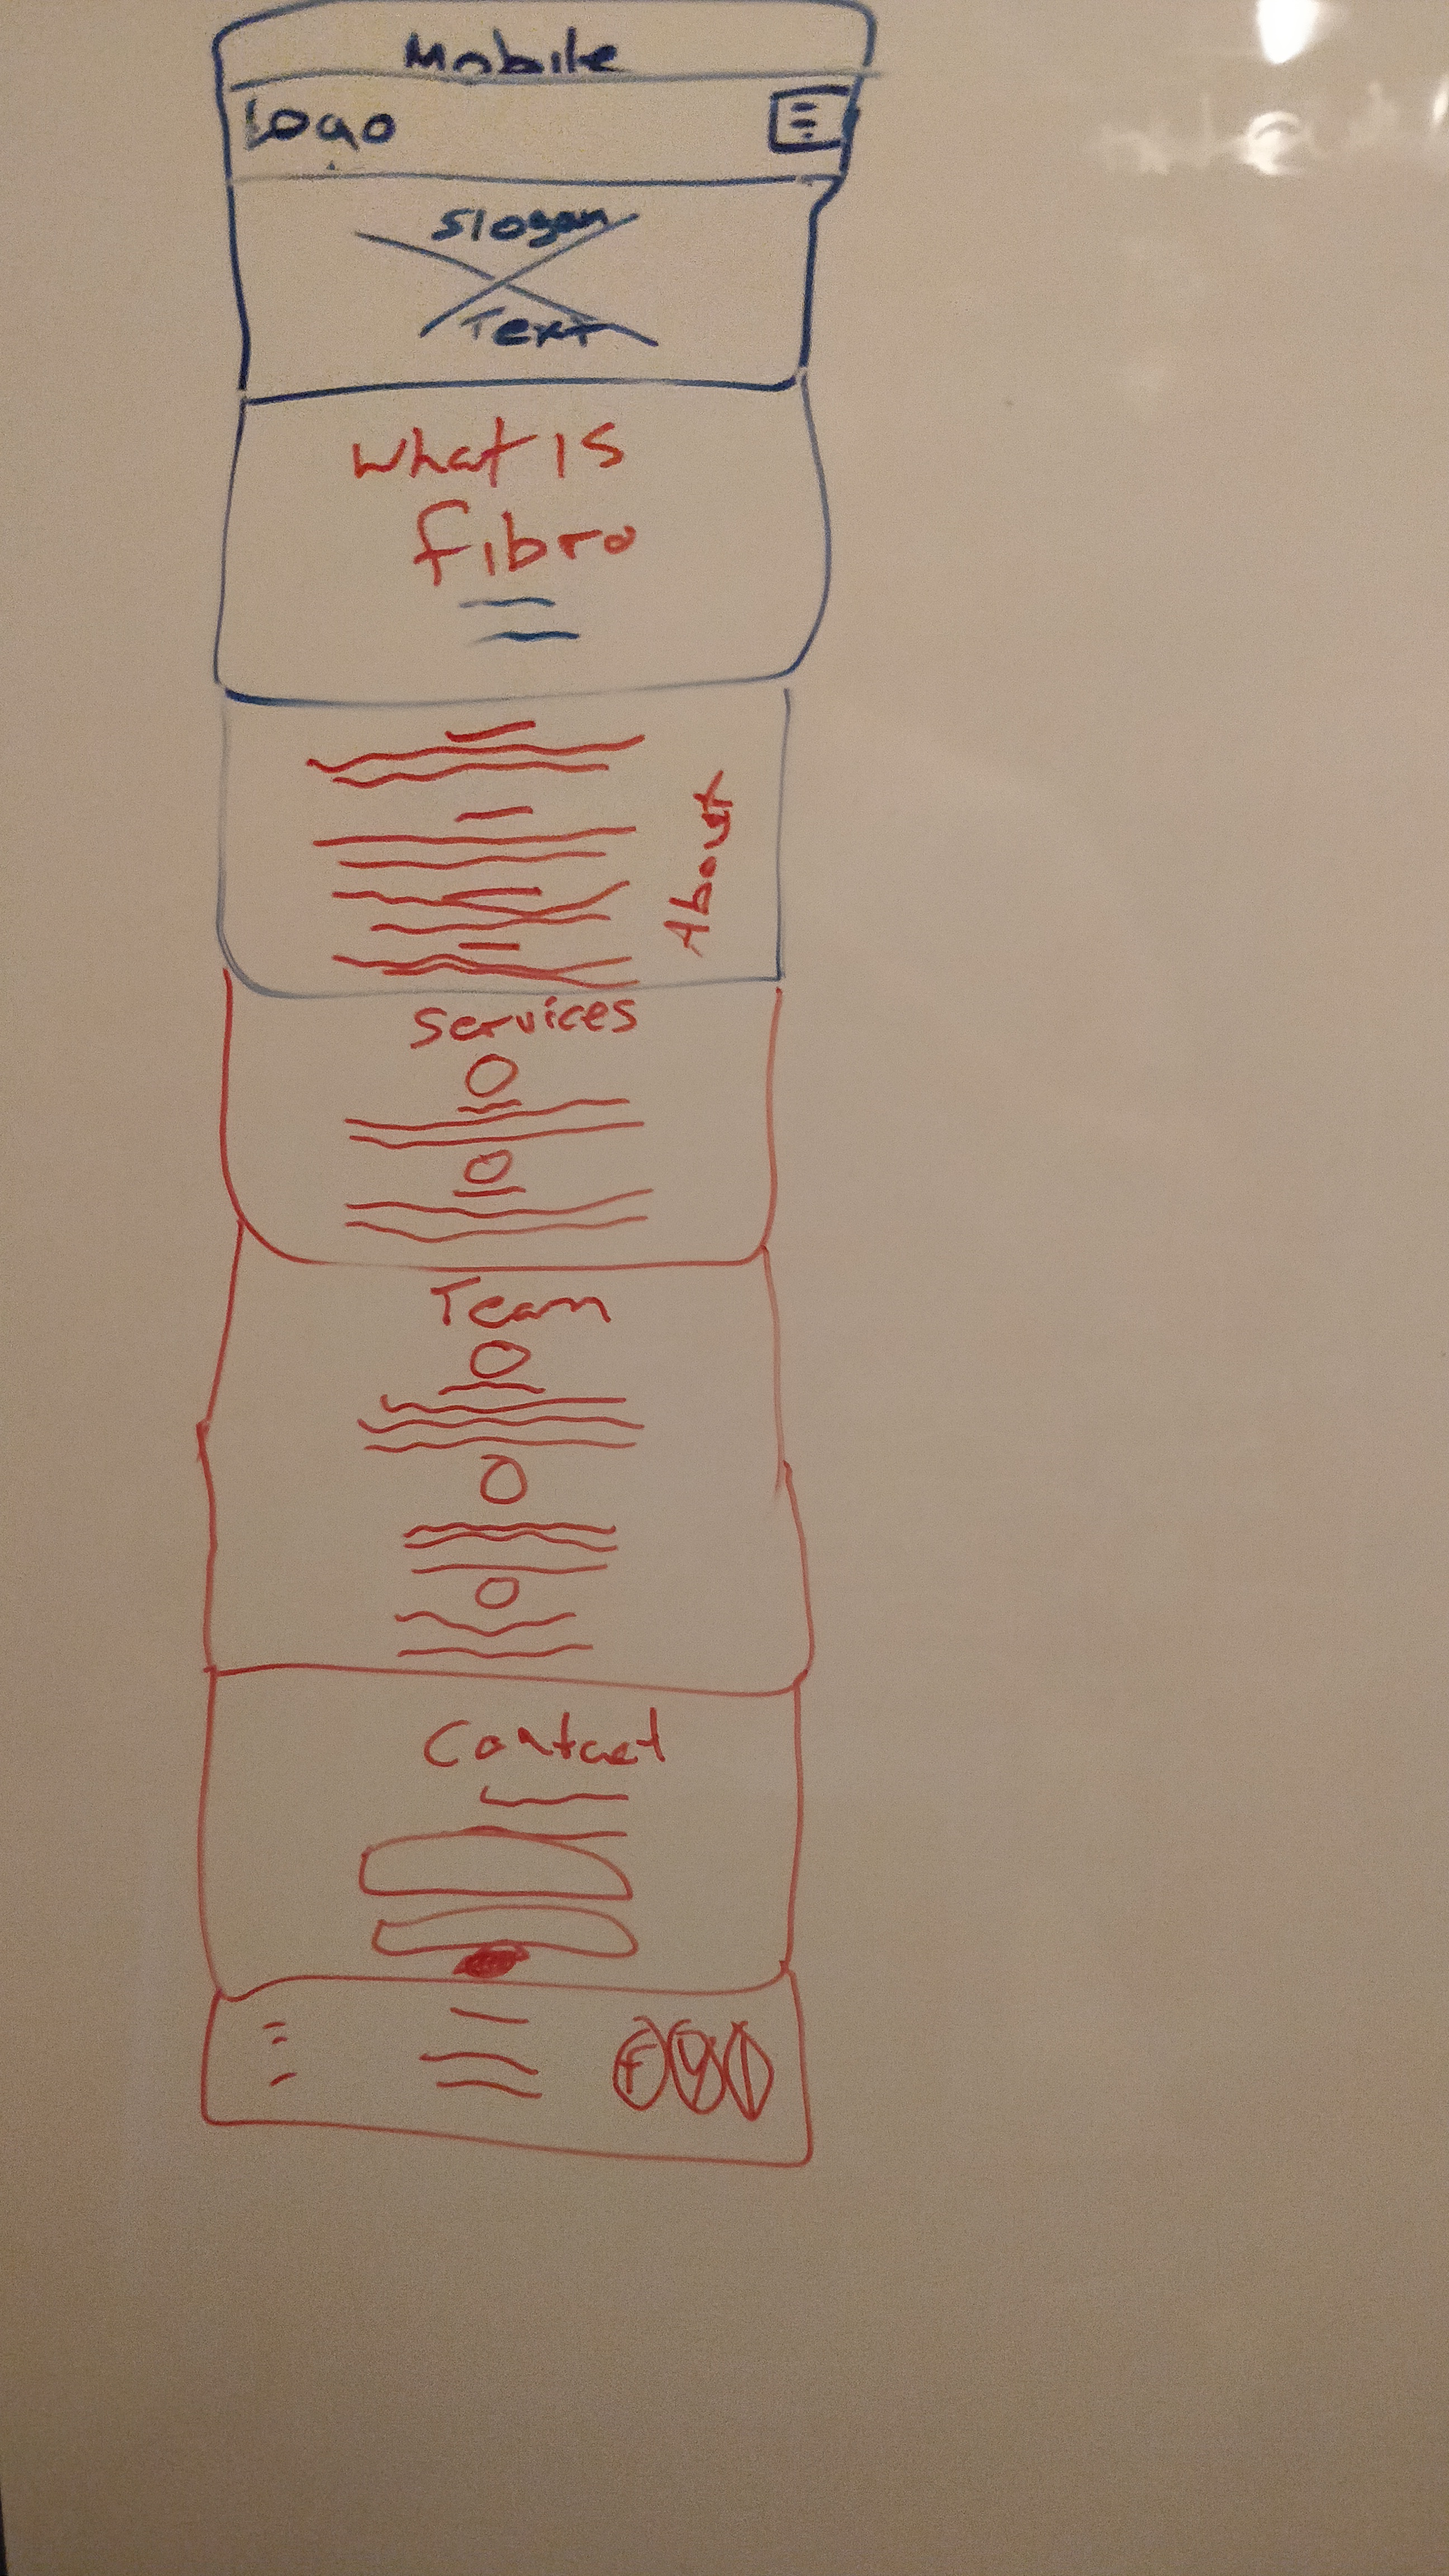 Mobile
Logo
Slogan
Text
What is
fibro
About
Services
Team
Contact
f